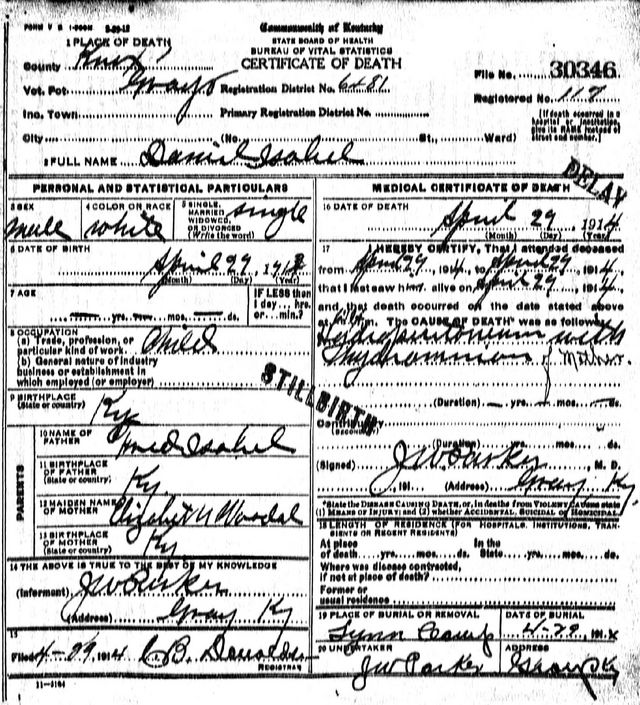 Commonwealth of Kentucky
STATE BOARD OF HEALTH
BUREAU OF VITAL STATISTICS
CERTIFICATE OF DEATH
1 PLACE OF DEATH
County Knox
Vot. Pct. Grays Registration District No. 6481
File No. 30346
Inc. Town Primary Registration District No.
Registered No. 117
City (No. St., Ward)
(If death occurred in a hospital or institution, give its NAME instead of street and number.)
2 FULL NAME Daniel Isabel
DELAY
PERSONAL AND STATISTICAL PARTICULARS
3 SEX male
4 COLOR OR RACE white
5 SINGLE, MARRIED WIDOWED, OR DIVORCED (Write the word) single
6 DATE OF BIRTH
April 29, 191
(Month) (Day) (Year)
7 AGE
yrs. mos. ds.
IF LESS than 1 day hrs. or min.?
8 OCCUPATION
(a) Trade, profession, or particular kind of work Child
(b) General nature of industry business or establishment in which employed (or employer)
9 BIRTHPLACE
(State or country) Ky
STILLBIRTH
PARENTS
10 NAME OF FATHER Isabel
11 BIRTHPLACE OF FATHER
(State or country) Ky.
12 MAIDEN NAME OF MOTHER
13 BIRTHPLACE OF MOTHER
(State or country) Ky
14 THE ABOVE IS TRUE TO THE BEST OF MY KNOWLEDGE
(Informant) J W Parker
(Address) Gray Ky
15
Filed 4-29, 1914 C. B. Donaldson
REGISTRAR
11-3184
MEDICAL CERTIFICATE OF DEATH
16 DATE OF DEATH
April 29, 1914
(Month) (Day) (Year)
17 I HEREBY CERTIFY, That I attended deceased
from April 29, 1914, to April 29, 1914
that I last saw him alive on April 29, 1914
and that death occurred on the date stated above
at m. The CAUSE OF DEATH* was as follows:
Hydroperitoneum with
Hydramnion of Mother.
(Duration) yrs. mos. ds.
Contributory
(SECONDARY)
(Duration) yrs. mos. ds.
(Signed) J W Parker, M. D.
, 191 (Address) Gray Ky.
*State the DISEASE CAUSING DEATH, or, in deaths from VIOLENT CAUSES state
(1) MEANS OF INJURY; and (2) whether ACCIDENTAL, SUICIDAL or HOMICIDAL.
18 LENGTH OF RESIDENCE (FOR HOSPITALS, INSTITUTIONS, TRANSIENTS OR RECENT RESIDENTS)
At place of death yrs. mos. ds. In the State yrs. mos. ds.
Where was disease contracted,
if not at place of death?
Former or
usual residence
19 PLACE OF BURIAL OR REMOVAL
Lynn Camp
DATE OF BURIAL
4-29, 1914
20 UNDERTAKER
J W Parker
ADDRESS
Gray Ky